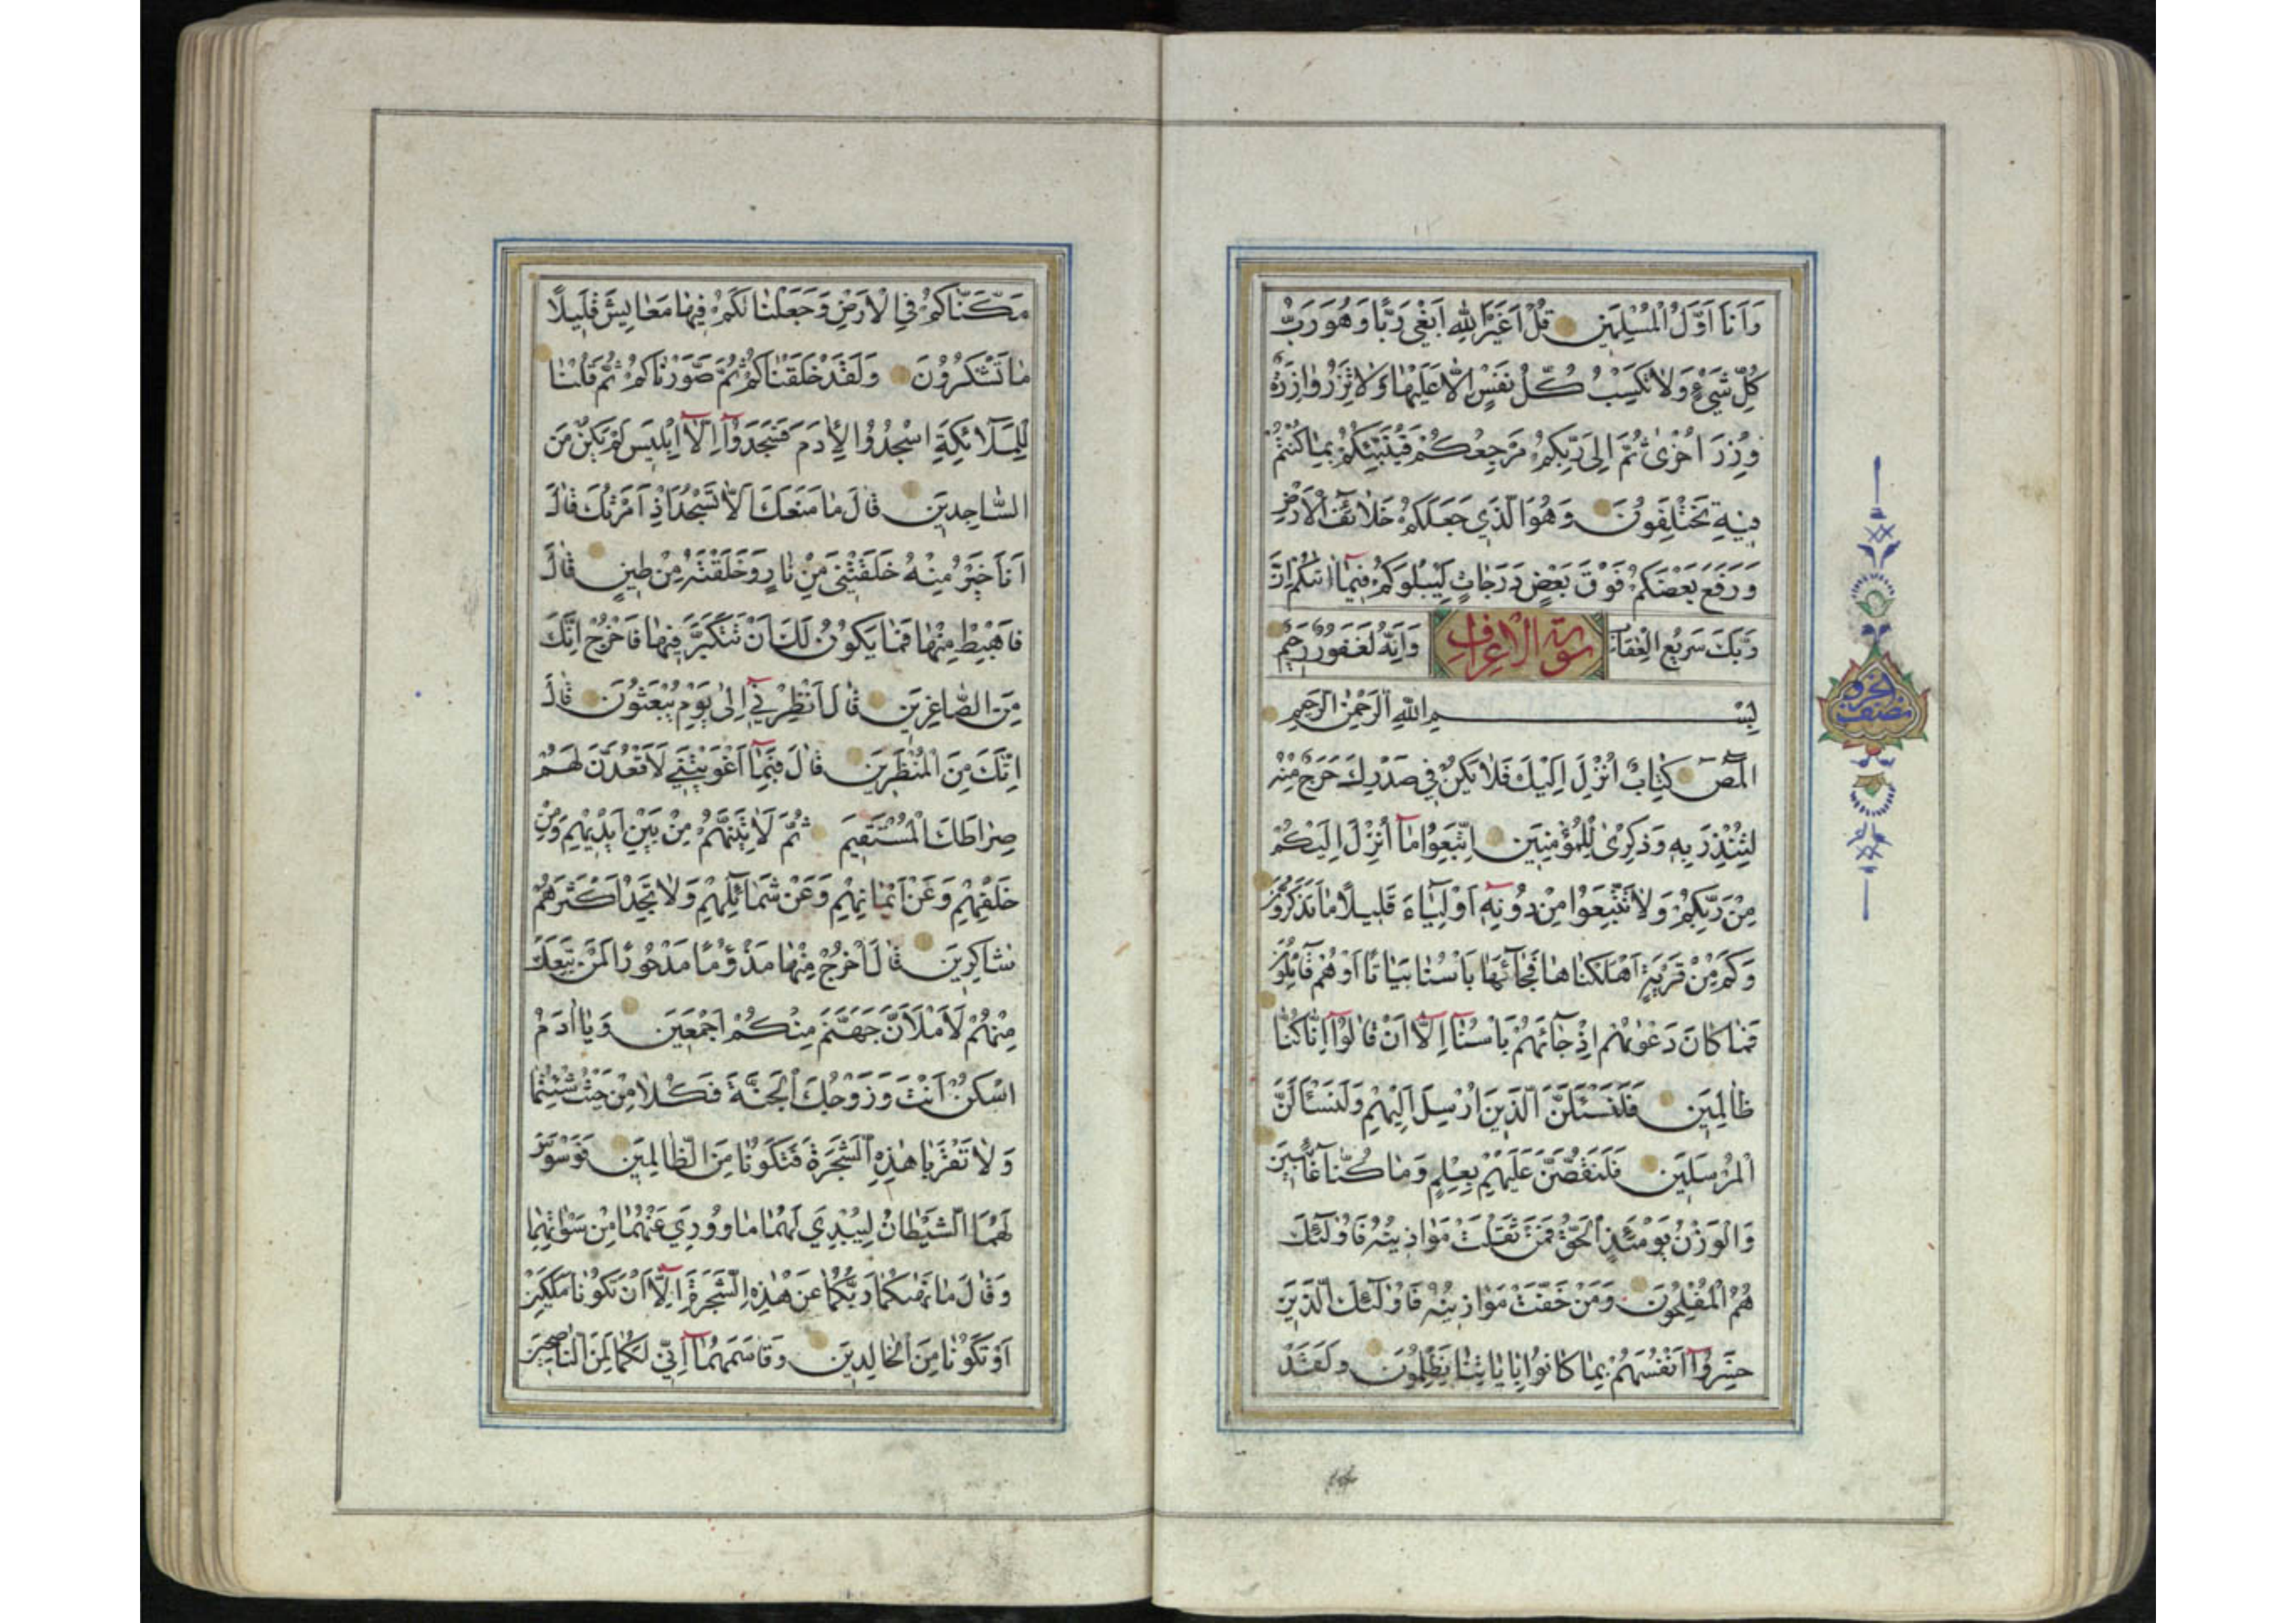 وَاَنَا اَوَّلُ الْمُسْلِمِينَ قُلْ اَغَيْرَ اللّٰهِ اَبْغِي رَبًّا وَهُوَ رَبُّ
كُلِّ شَيْءٍ وَلَا تَكْسِبُ كُلُّ نَفْسٍ اِلَّا عَلَيْهَا وَلَا تَزِرُ وَازِرَةٌ
وِزْرَ اُخْرٰى ثُمَّ اِلٰى رَبِّكُمْ مَرْجِعُكُمْ فَيُنَبِّئُكُمْ بِمَا كُنْتُمْ
فِيهِ تَخْتَلِفُونَ وَهُوَ الَّذِي جَعَلَكُمْ خَلَائِفَ الْاَرْضِ
وَرَفَعَ بَعْضَكُمْ فَوْقَ بَعْضٍ دَرَجَاتٍ لِيَبْلُوَكُمْ فِيمَا اٰتٰيكُمْ اِنَّ
رَبَّكَ سَرِيعُ الْعِقَابِ سورة الاعراف وَاِنَّهُ لَغَفُورٌ رَحِيمٌ
بِسْمِ اللّٰهِ الرَّحْمٰنِ الرَّحِيمِ
الٓمٓصٓ كِتَابٌ اُنْزِلَ اِلَيْكَ فَلَا يَكُنْ فِي صَدْرِكَ حَرَجٌ مِنْهُ
لِتُنْذِرَ بِهِ وَذِكْرٰى لِلْمُؤْمِنِينَ اِتَّبِعُوا مَا اُنْزِلَ اِلَيْكُمْ
مِنْ رَبِّكُمْ وَلَا تَتَّبِعُوا مِنْ دُونِهِ اَوْلِيَاءَ قَلِيلًا مَا تَذَكَّرُونَ
وَكَمْ مِنْ قَرْيَةٍ اَهْلَكْنَاهَا فَجَائَهَا بَاْسُنَا بَيَاتًا اَوْ هُمْ قَائِلُونَ
فَمَا كَانَ دَعْوٰيهُمْ اِذْ جَائَهُمْ بَاْسُنَا اِلَّا اَنْ قَالُوا اِنَّا كُنَّا
ظَالِمِينَ فَلَنَسْئَلَنَّ الَّذِينَ اُرْسِلَ اِلَيْهِمْ وَلَنَسْئَلَنَّ
الْمُرْسَلِينَ فَلَنَقُصَّنَّ عَلَيْهِمْ بِعِلْمٍ وَمَا كُنَّا غَائِبِينَ
وَالْوَزْنُ يَوْمَئِذٍ الْحَقُّ فَمَنْ ثَقُلَتْ مَوَازِينُهُ فَاُولٰئِكَ
هُمُ الْمُفْلِحُونَ وَمَنْ خَفَّتْ مَوَازِينُهُ فَاُولٰئِكَ الَّذِينَ
خَسِرُوا اَنْفُسَهُمْ بِمَا كَانُوا بِاٰيَاتِنَا يَظْلِمُونَ وَلَقَدْ
نصف الجزو
مَكَّنَّاكُمْ فِي الْاَرْضِ وَجَعَلْنَا لَكُمْ فِيهَا مَعَايِشَ قَلِيلًا
مَا تَشْكُرُونَ وَلَقَدْ خَلَقْنَاكُمْ ثُمَّ صَوَّرْنَاكُمْ ثُمَّ قُلْنَا
لِلْمَلَائِكَةِ اسْجُدُوا لِاٰدَمَ فَسَجَدُوا اِلَّا اِبْلِيسَ لَمْ يَكُنْ مِنَ
السَّاجِدِينَ قَالَ مَا مَنَعَكَ اَلَّا تَسْجُدَ اِذْ اَمَرْتُكَ قَالَ
اَنَا خَيْرٌ مِنْهُ خَلَقْتَنِي مِنْ نَارٍ وَخَلَقْتَهُ مِنْ طِينٍ قَالَ
فَاهْبِطْ مِنْهَا فَمَا يَكُونُ لَكَ اَنْ تَتَكَبَّرَ فِيهَا فَاخْرُجْ اِنَّكَ
مِنَ الصَّاغِرِينَ قَالَ اَنْظِرْنِي اِلٰى يَوْمِ يُبْعَثُونَ قَالَ
اِنَّكَ مِنَ الْمُنْظَرِينَ قَالَ فَبِمَا اَغْوَيْتَنِي لَاَقْعُدَنَّ لَهُمْ
صِرَاطَكَ الْمُسْتَقِيمَ ثُمَّ لَاٰتِيَنَّهُمْ مِنْ بَيْنِ اَيْدِيهِمْ وَمِنْ
خَلْفِهِمْ وَعَنْ اَيْمَانِهِمْ وَعَنْ شَمَائِلِهِمْ وَلَا تَجِدُ اَكْثَرَهُمْ
شَاكِرِينَ قَالَ اخْرُجْ مِنْهَا مَذْؤُمًا مَدْحُورًا لَمَنْ تَبِعَكَ
مِنْهُمْ لَاَمْلَاَنَّ جَهَنَّمَ مِنْكُمْ اَجْمَعِينَ وَيَا اٰدَمُ
اسْكُنْ اَنْتَ وَزَوْجُكَ الْجَنَّةَ فَكُلَا مِنْ حَيْثُ شِئْتُمَا
وَلَا تَقْرَبَا هٰذِهِ الشَّجَرَةَ فَتَكُونَا مِنَ الظَّالِمِينَ فَوَسْوَسَ
لَهُمَا الشَّيْطَانُ لِيُبْدِيَ لَهُمَا مَا وُورِيَ عَنْهُمَا مِنْ سَوْاٰتِهِمَا
وَقَالَ مَا نَهٰيكُمَا رَبُّكُمَا عَنْ هٰذِهِ الشَّجَرَةِ اِلَّا اَنْ تَكُونَا مَلَكَيْنِ
اَوْ تَكُونَا مِنَ الْخَالِدِينَ وَقَاسَمَهُمَا اِنِّي لَكُمَا لَمِنَ النَّاصِحِينَ